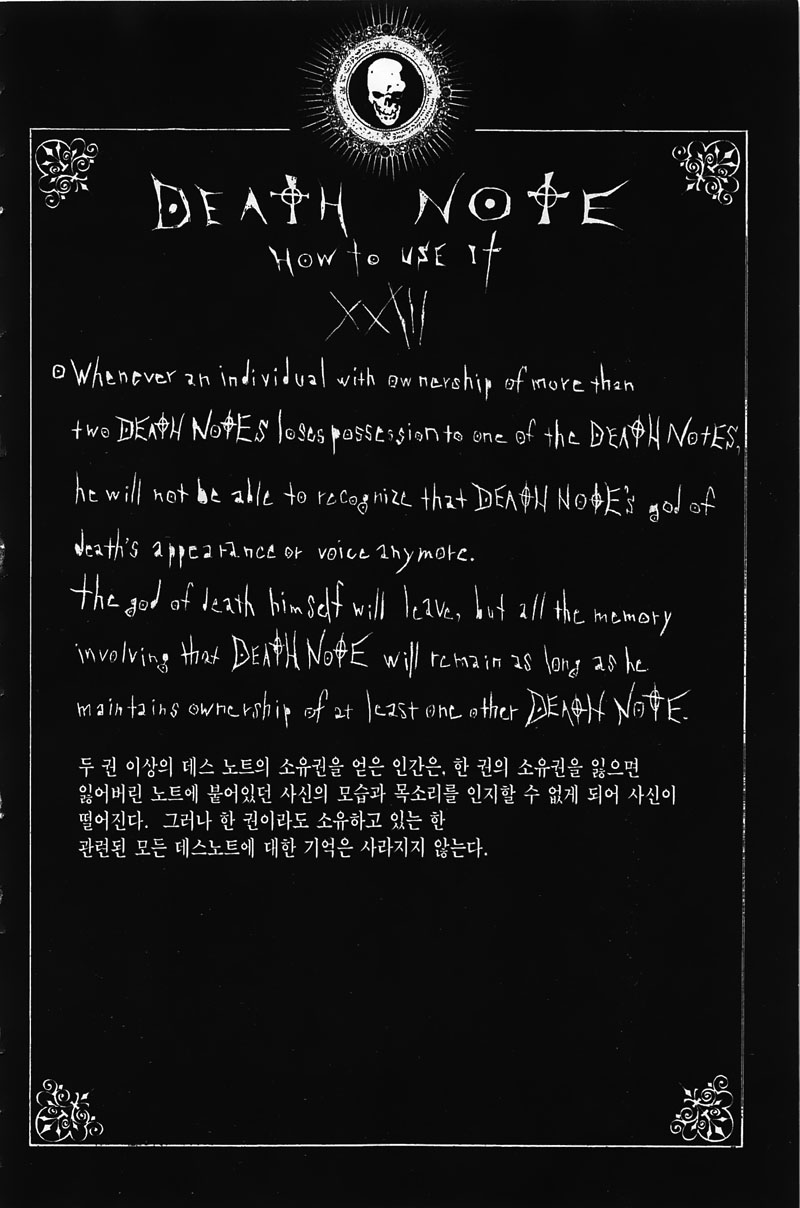 DEATH NOTE
HOW TO USE IT
XXIII
Whenever an individual with ownership of more than
two DEATH NOTES loses possession to one of the DEATH NOTES,
he will not be able to recognize that DEATH NOTE's god of
death's appearance or voice anymore.
the god of death himself will leave, but all the memory
involving that DEATH NOTE will remain as long as he
maintains ownership of at least one other DEATH NOTE.
두 권 이상의 데스 노트의 소유권을 얻은 인간은, 한 권의 소유권을 잃으면
잃어버린 노트에 붙어있던 사신의 모습과 목소리를 인지할 수 없게 되어 사신이
떨어진다. 그러나 한 권이라도 소유하고 있는 한
관련된 모든 데스노트에 대한 기억은 사라지지 않는다.